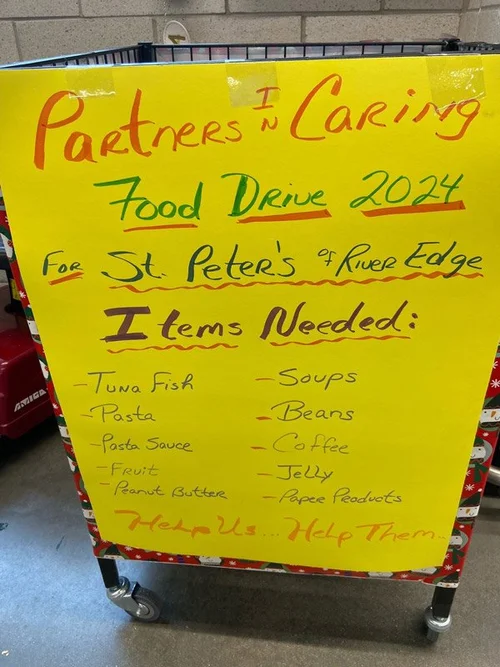 Partners IN Caring
Food Drive 2024
For St. Peter's of River Edge
Items Needed:
- Tuna Fish
- Pasta
- Pasta Sauce
- Fruit
- Peanut Butter
- Soups
- Beans
- Coffee
- Jelly
- Paper Products
Help Us... Help Them.
AMIGO